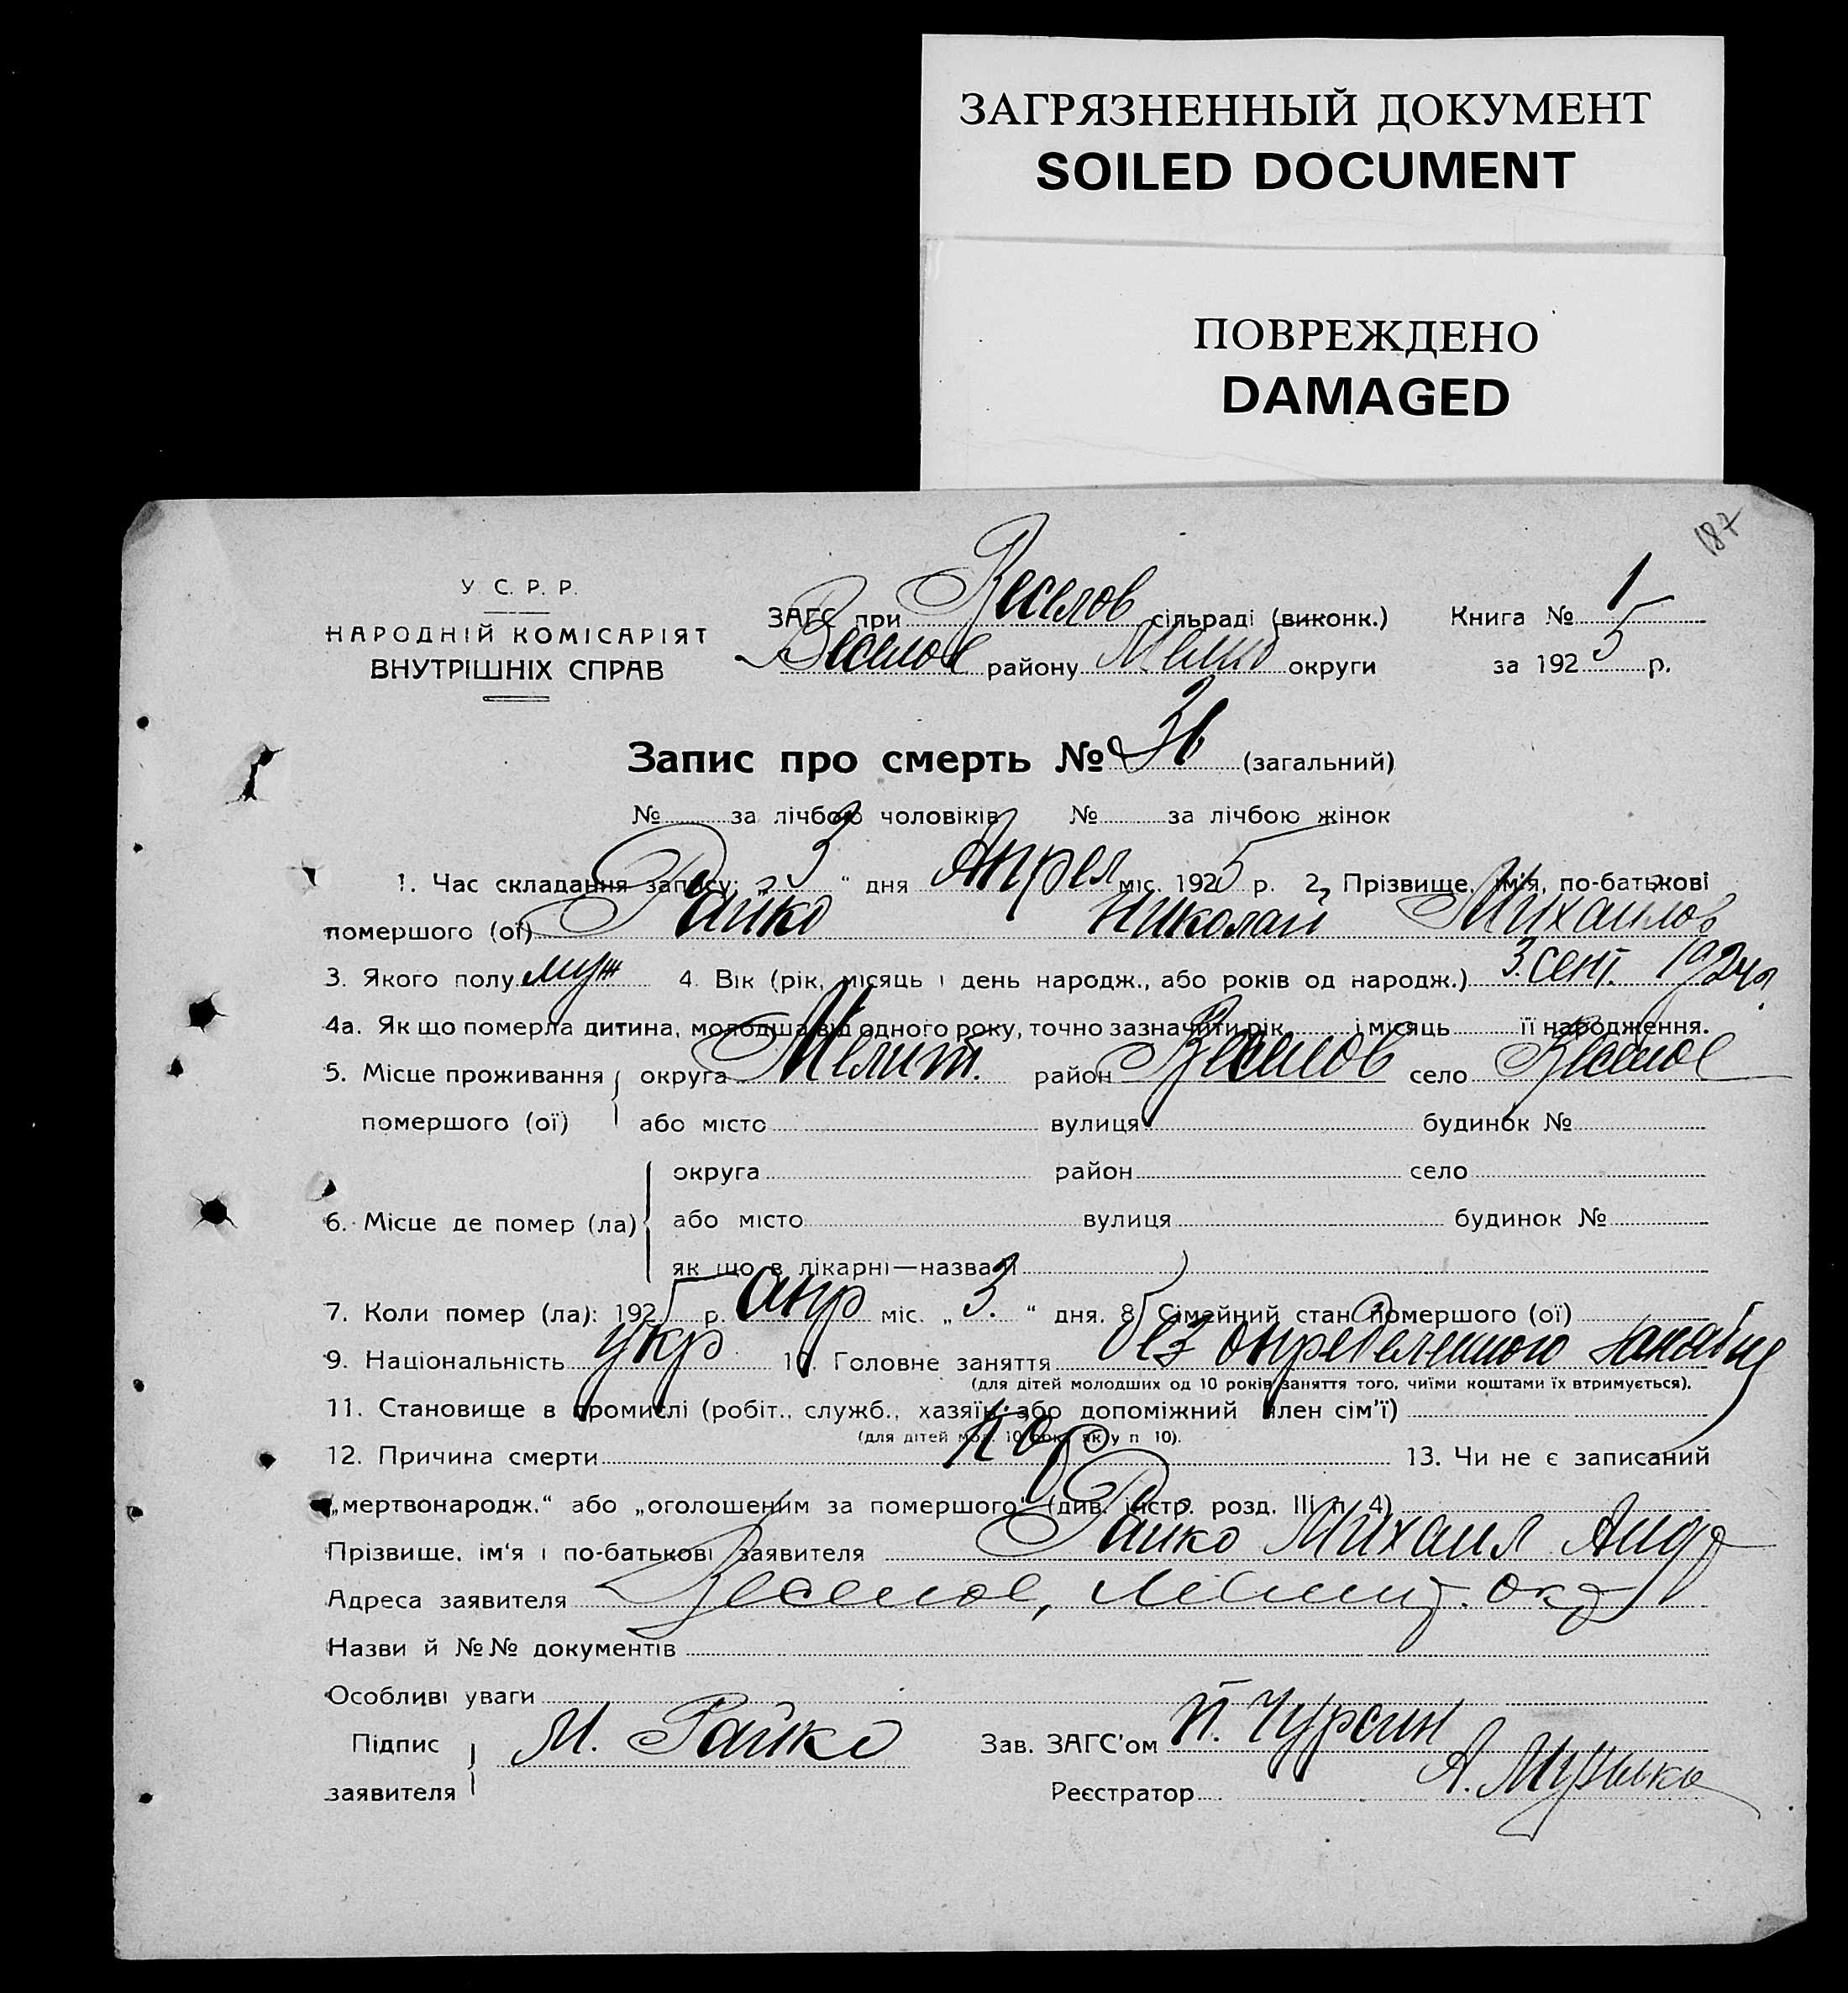 ЗАГРЯЗНЕННЫЙ ДОКУМЕНТ
SOILED DOCUMENT
ПОВРЕЖДЕНО
DAMAGED
187
У. С. Р. Р.
НАРОДНІЙ КОМІСАРІЯТ
ВНУТРІШНІХ СПРАВ
ЗАГС при Веселов сільраді (виконк.) Книга № 1
Веселов району Мелит округи за 1925 р.
Запис про смерть № 36 (загальний)
№ за лічбою чоловіків № за лічбою жінок
1. Час складання запису: „ 3 “ дня Апрел міс. 1925 р. 2. Прізвище, ім'я, по-батькові
помершого (ої) Райко Николай Михайлов
3. Якого полу муж 4. Вік (рік, місяць і день народж., або років од народж.) 3. сент. 1924 г.
4а. Як що померла дитина, молодша від одного року, точно зазначити рік і місяць її народження.
5. Місце проживання округа Мелит. район Веселов село Веселое
помершого (ої) або місто вулиця будинок №
округа район село
6. Місце де помер (ла) або місто вулиця будинок №
як що в лікарні—назва її
7. Коли помер (ла): 1925 р. апр міс. „ 3. “ дня. 8. Сімейний стан помершого (ої)
9. Національність укр 10. Головне заняття без определенного
(для дітей молодших од 10 років заняття того, чиїми коштами їх втримується).
11. Становище в промислі (робіт., служб., хазяїн або допоміжний член сім'ї)
(для дітей мол. 10 рок. як у п 10).
12. Причина смерти Кор 13. Чи не є записаний
„мертвонародж.“ або „оголошеним за помершого“ (див. інстр. розд. III п. 4)
Прізвище, ім'я і по-батькові заявителя Райко Михаил Андр
Адреса заявителя Веселое, Мелит. окр
Назви й №№ документів
Особливі уваги
Підпис М. Райко Зав. ЗАГС'ом П. Чурсин
заявителя Реєстратор А.